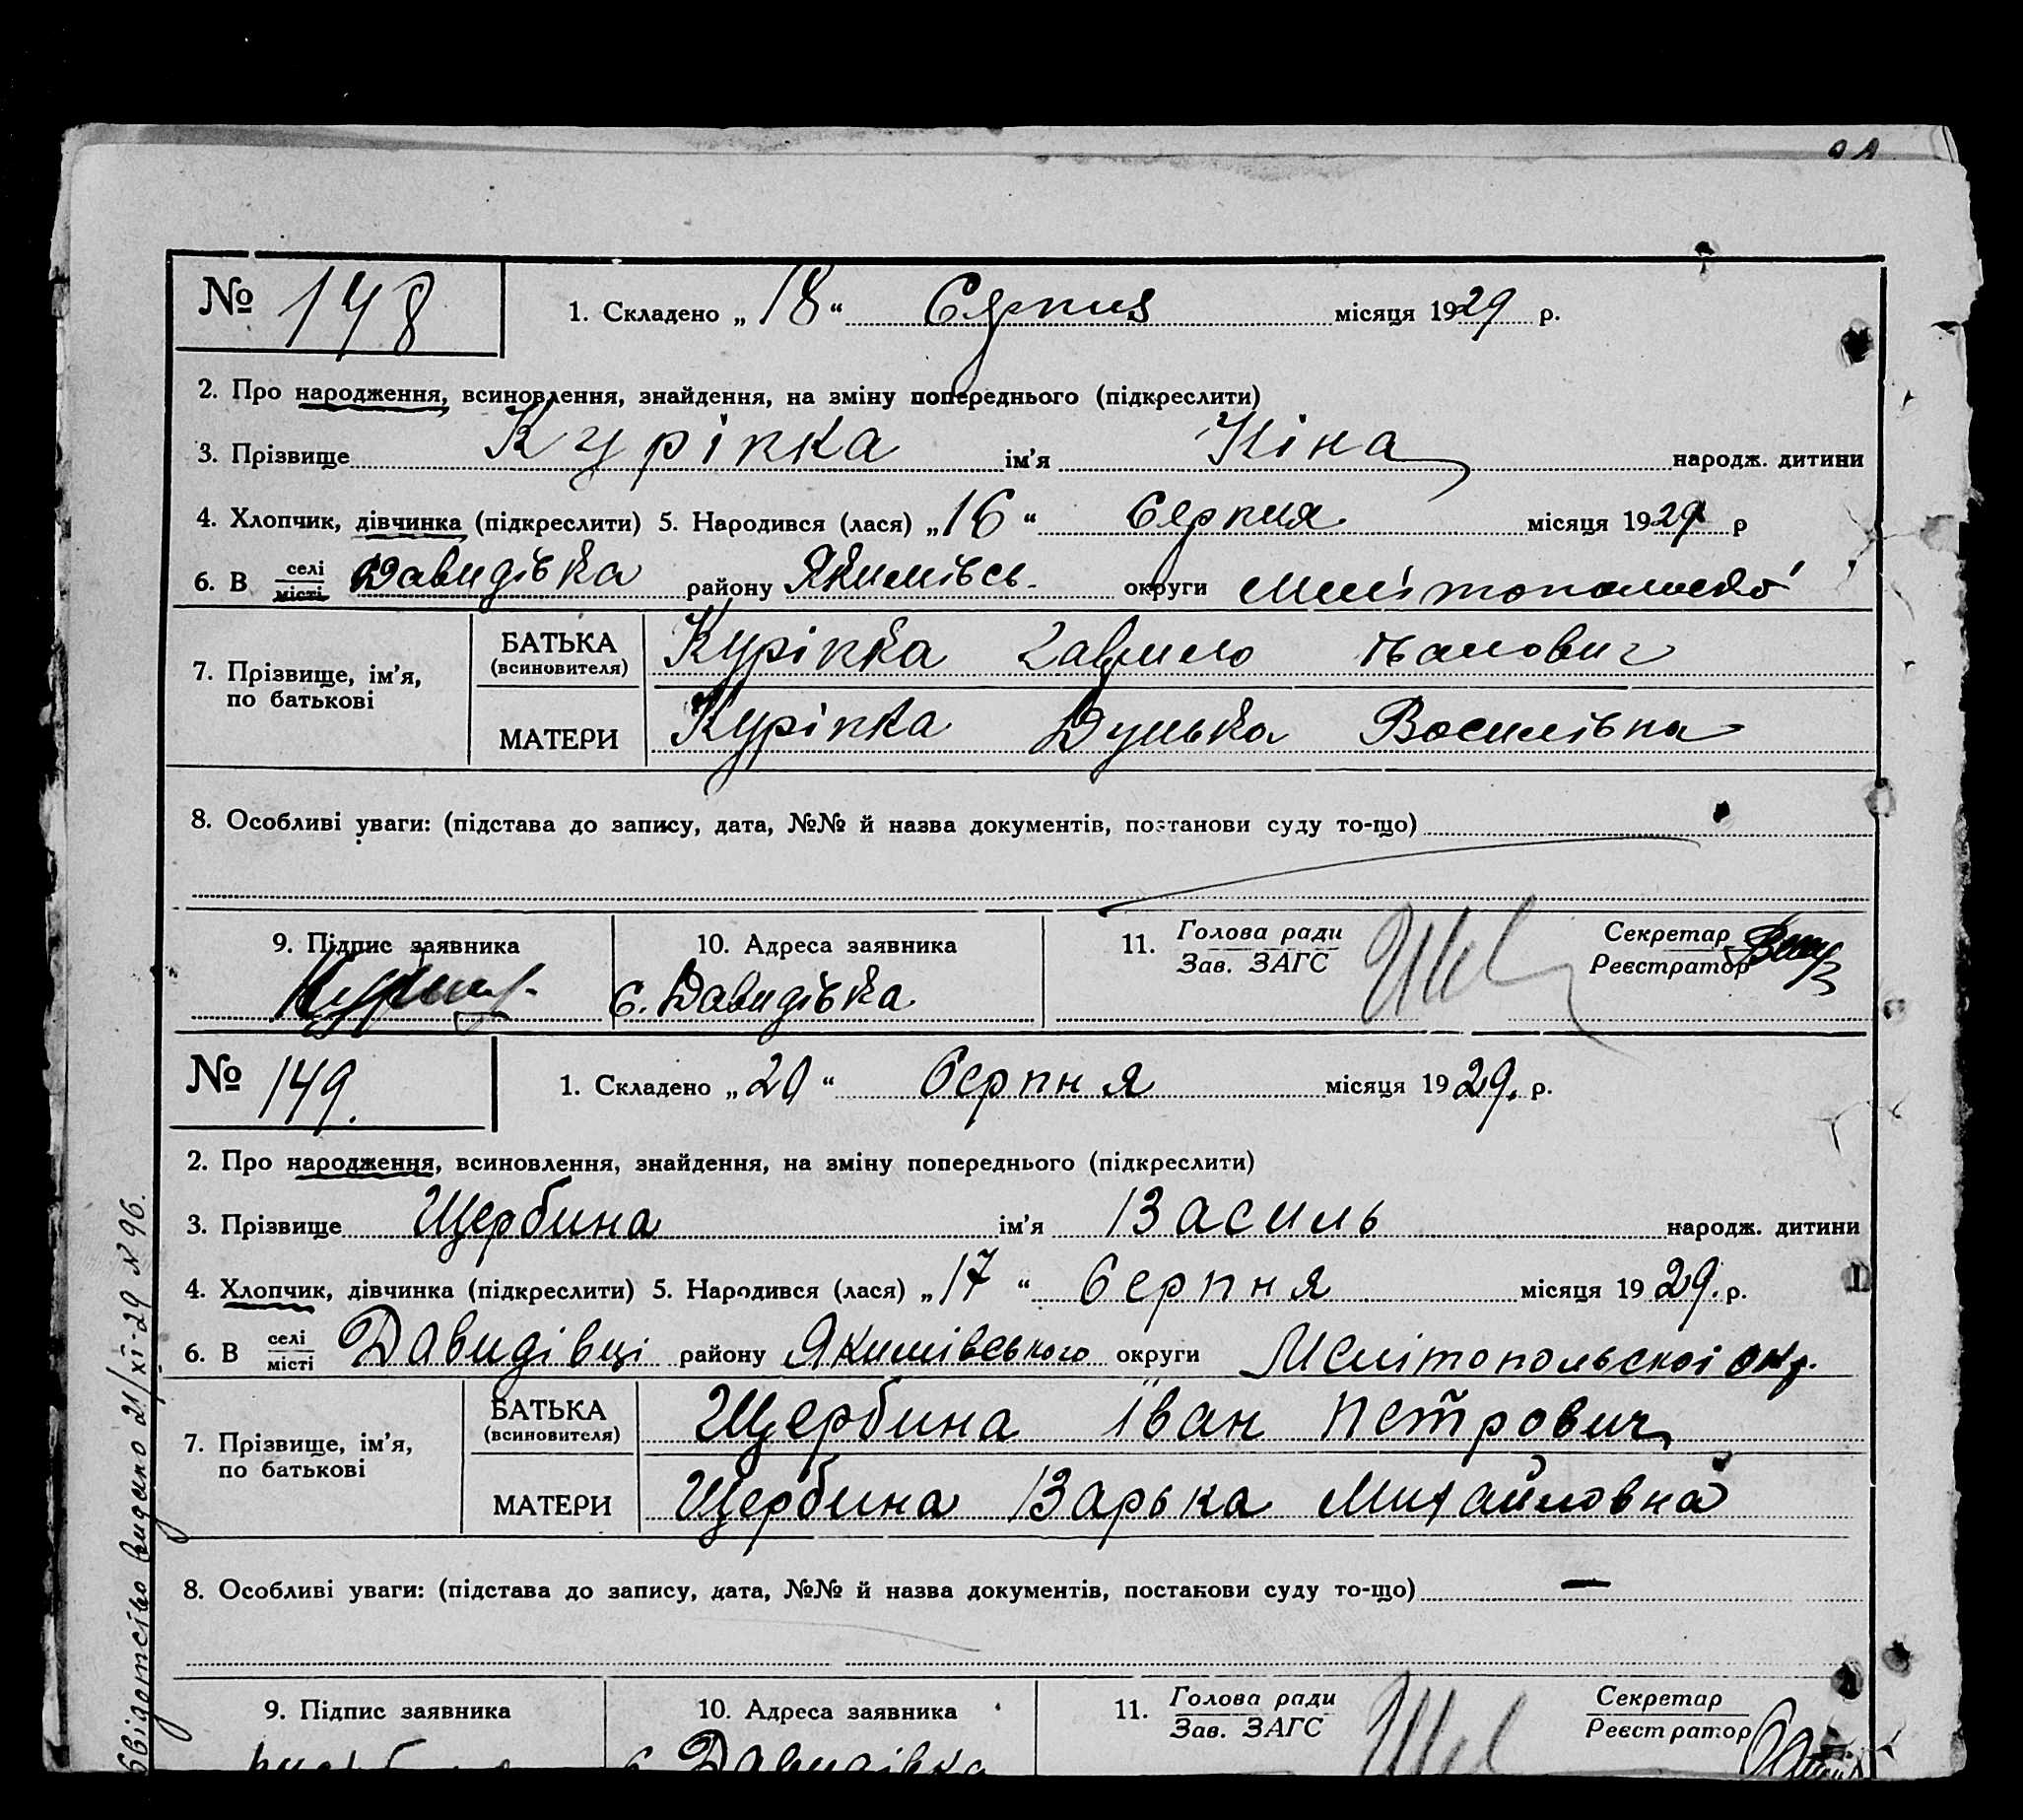 № 148
1. Складено „18“ Серпня місяця 1929 р.
2. Про народження, всиновлення, знайдення, на зміну попереднього (підкреслити)
3. Прізвище Куріпка ім'я Ніна народж. дитини
4. Хлопчик, дівчинка (підкреслити) 5. Народився (лася) „16“ Серпня місяця 1929 р
6. В селі місті Давидівка району Якимівсь. округи
7. Прізвище, ім'я, по батькові
БАТЬКА (всиновителя) Куріпка Гаврило Іванович
МАТЕРИ Куріпка Дунька Василівна
8. Особливі уваги: (підстава до запису, дата, №№ й назва документів, постанови суду то-що)
9. Підпис заявника
10. Адреса заявника
с. Давидівка
11. Голова ради Зав. ЗАГС
Секретар Реєстратор
№ 149.
1. Складено „20“ Серпня місяця 1929. р.
2. Про народження, всиновлення, знайдення, на зміну попереднього (підкреслити)
3. Прізвище Щербина ім'я Василь народж. дитини
4. Хлопчик, дівчинка (підкреслити) 5. Народився (лася) „17“ Серпня місяця 1929. р.
6. В селі місті Давидівці району Якимівського округи Мелітопольскоі окр.
7. Прізвище, ім'я, по батькові
БАТЬКА (всиновителя) Щербина Іван Петрович
МАТЕРИ Щербина Варька Михайловна
8. Особливі уваги: (підстава до запису, дата, №№ й назва документів, постанови суду то-що) —
9. Підпис заявника
10. Адреса заявника
с. Давидівка
11. Голова ради Зав. ЗАГС
Секретар Реєстратор
Свідотство видано 21/XI-29 N 96.